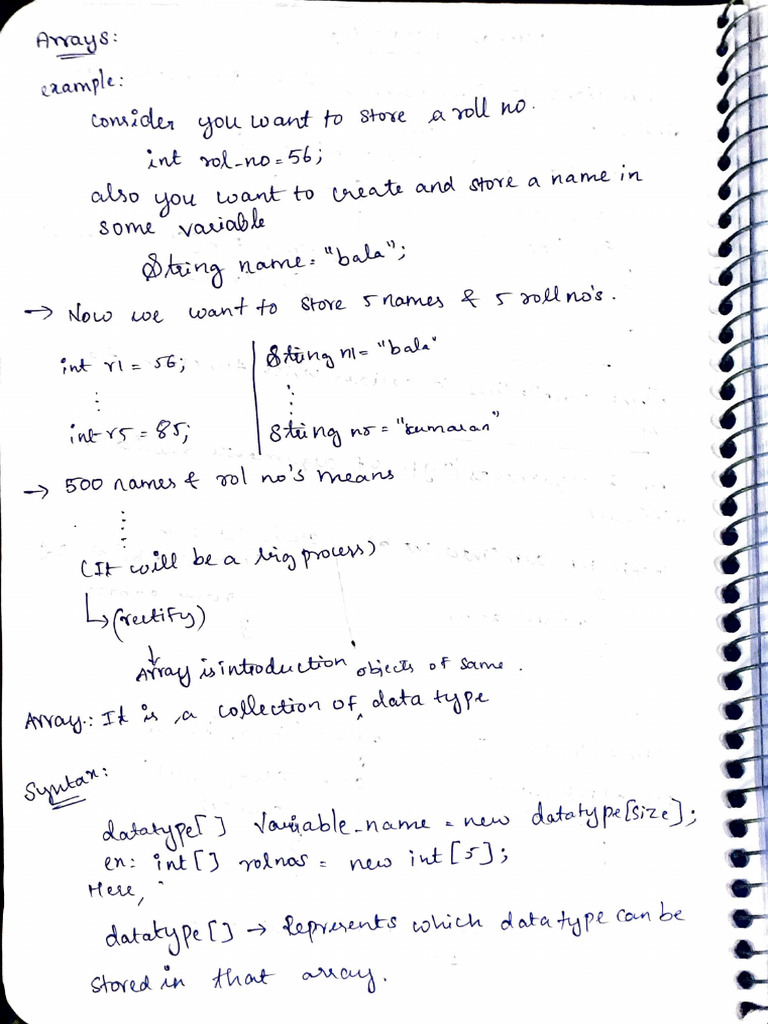 Arrays:
example:
Consider you want to store a roll no.
int rol_no = 56;
also you want to create and store a name in
some variable
String name = "bala";
→ Now we want to store 5 names & 5 roll no's.
int r1 = 56; | String n1 = "bala"
⋮ | ⋮
int r5 = 85; | String n5 = "kumaran"
→ 500 names & rol no's means
⋮
(It will be a big process)
↳ (rectify)
↓
Array is introduction
objects of same.
Array: It is a collection of ‸ data type
Syntax:
datatype[] variable_name = new datatype[size];
ex: int[] rolnos = new int[5];
Here,
datatype[] → Represents which datatype can be
stored in that array.